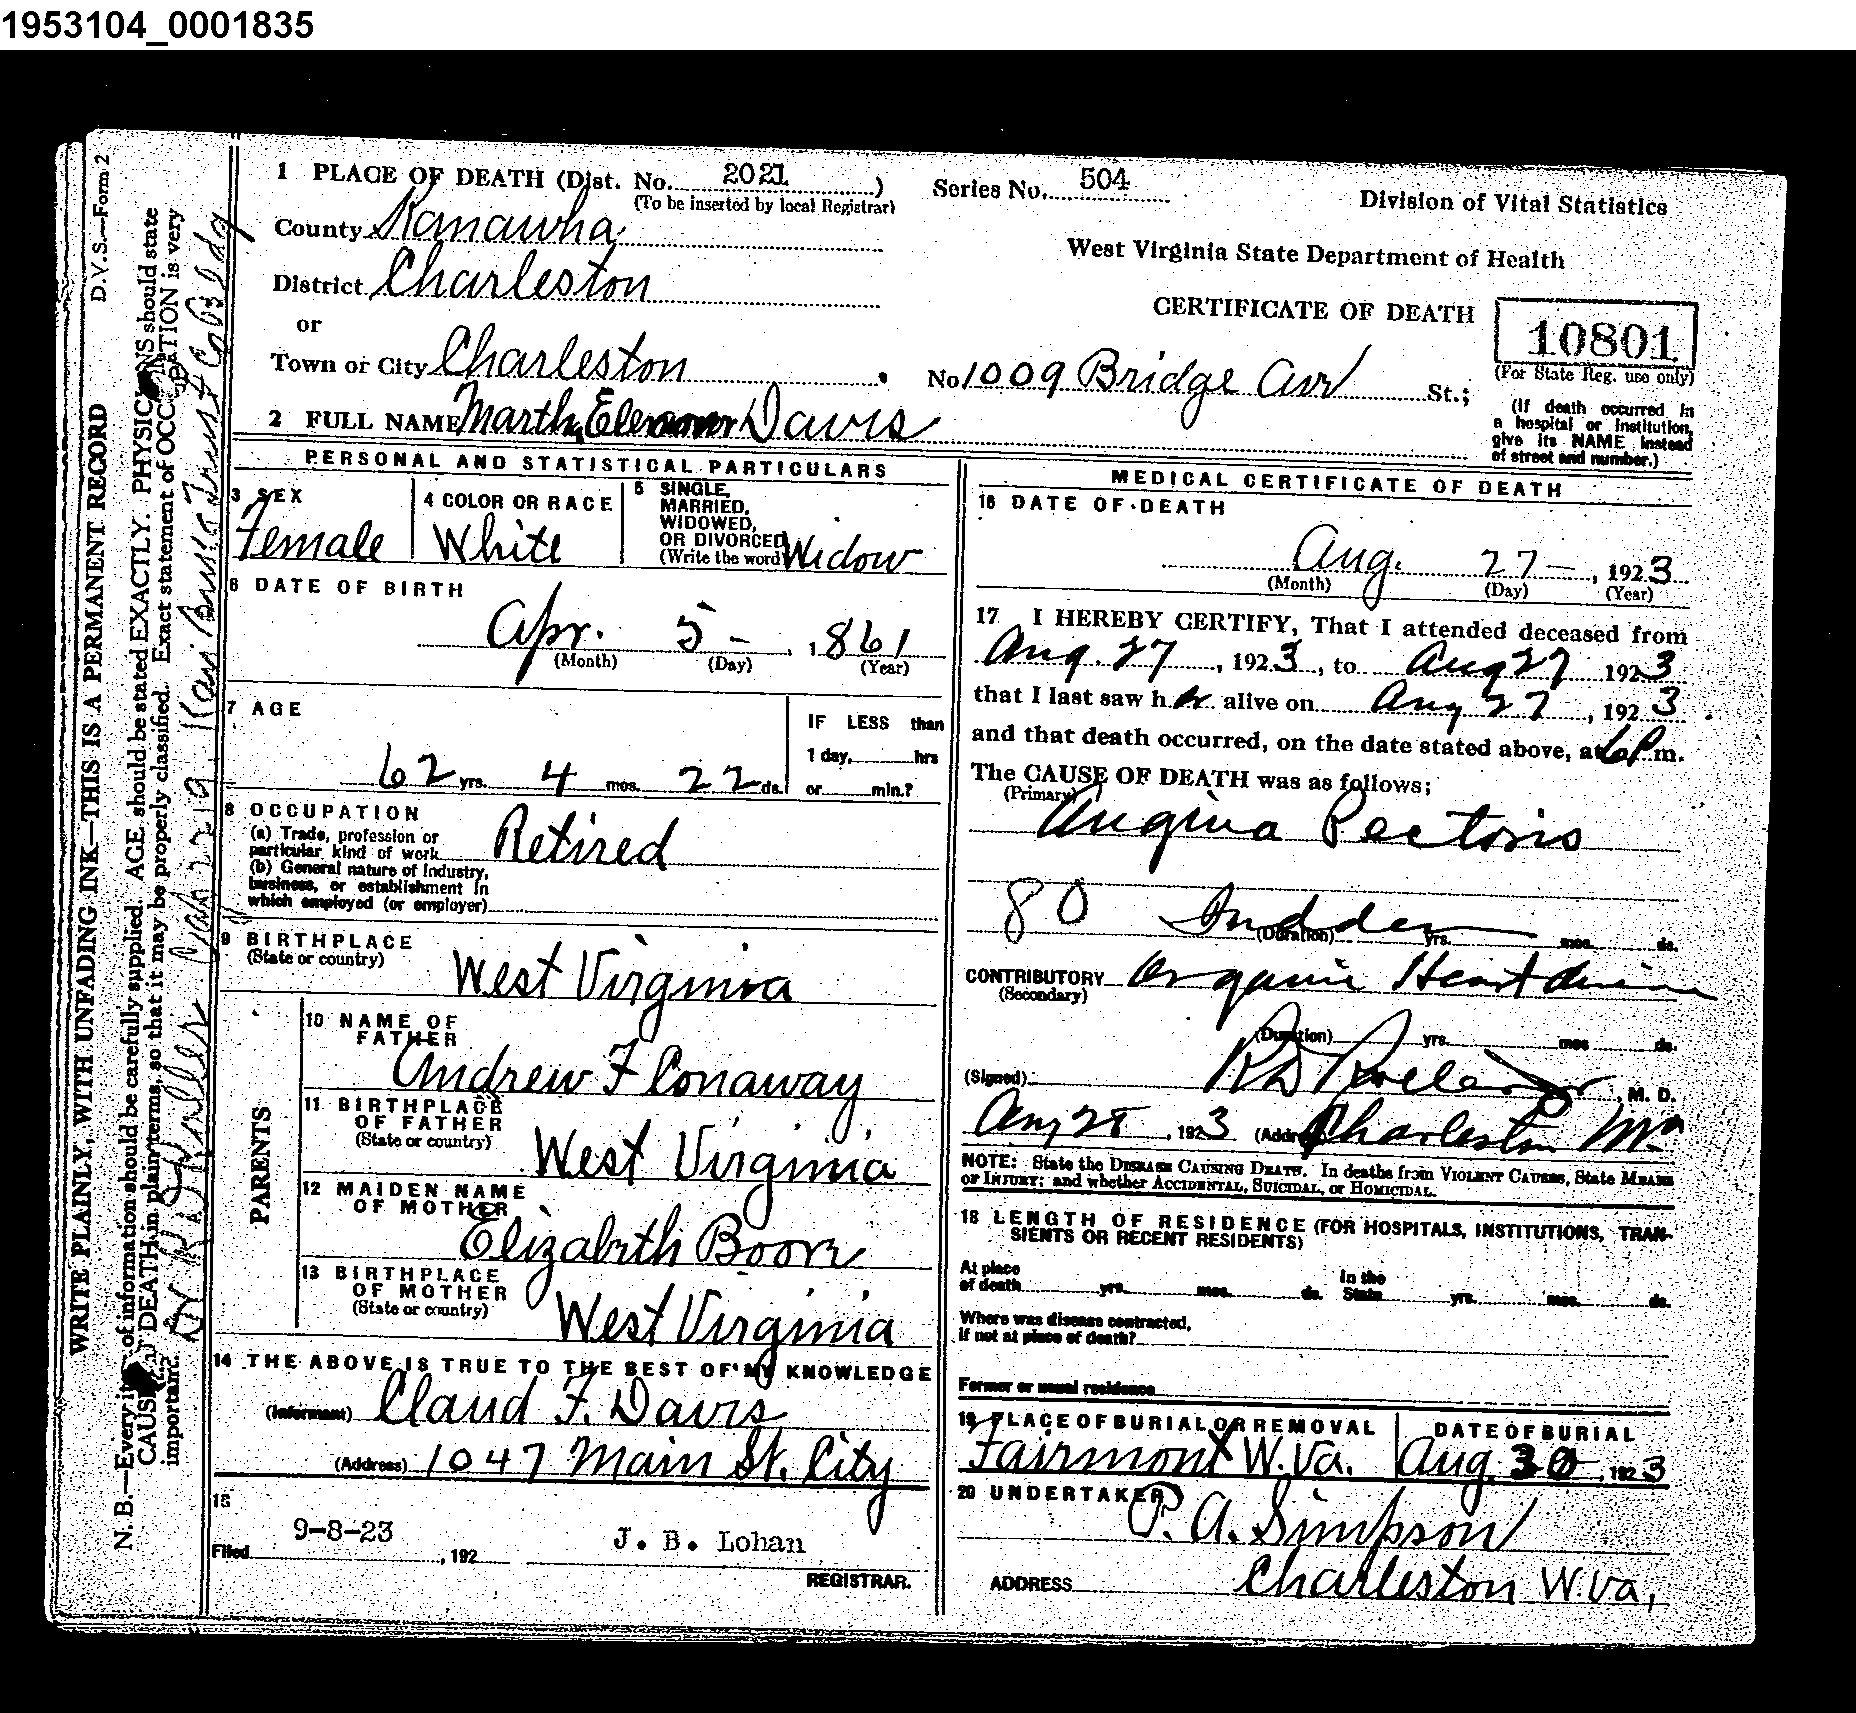 1953104_0001835
D.V.S.—Form 2
WRITE PLAINLY, WITH UNFADING INK—THIS IS A PERMANENT RECORD
N. B.—Every it of information should be carefully supplied. AGE should be stated EXACTLY. PHYSIC NS should state
CAUS DEATH in plain terms, so that it may be properly classified. Exact statement of OCC ATION is very
important.
1 PLACE OF DEATH (Dist. No. 2021 )
(To be inserted by local Registrar)
Series No. 504
Division of Vital Statistics
County Kanawha
West Virginia State Department of Health
District Charleston
CERTIFICATE OF DEATH
10801
(For State Reg. use only)
or
Town or City Charleston
No 1009 Bridge Ave St.;
(If death occurred in
a hospital or institution,
give its NAME instead
of street and number.)
2 FULL NAME Martha Davis
PERSONAL AND STATISTICAL PARTICULARS
3 SEX
Female
4 COLOR OR RACE
White
5 SINGLE,
MARRIED,
WIDOWED,
OR DIVORCED
(Write the word) Widow
6 DATE OF BIRTH
Apr. 5 - , 1861
(Month) (Day) (Year)
7 AGE
62 yrs. 4 mos. 22 ds.
IF LESS than
1 day, hrs
or min.?
8 OCCUPATION
(a) Trade, profession or
particular kind of work Retired
(b) General nature of industry,
business, or establishment in
which employed (or employer)
9 BIRTHPLACE
(State or country)
West Virginia
PARENTS
10 NAME OF
FATHER
Andrew F Conaway
11 BIRTHPLACE
OF FATHER
(State or country)
West Virginia
12 MAIDEN NAME
OF MOTHER
Elizabeth Boor
13 BIRTHPLACE
OF MOTHER
(State or country)
West Virginia
14 THE ABOVE IS TRUE TO THE BEST OF MY KNOWLEDGE
(Informant) Claud F. Davis
(Address) 1047 Main St. City
15
Filed 9-8-23 , 192
J. B. Lohan
REGISTRAR.
MEDICAL CERTIFICATE OF DEATH
16 DATE OF DEATH
Aug. 27 - , 1923
(Month) (Day) (Year)
17 I HEREBY CERTIFY, That I attended deceased from
Aug. 27 , 1923, to Aug 27 1923
that I last saw her alive on Aug 27 , 1923
and that death occurred, on the date stated above, at 6 P m.
The CAUSE OF DEATH was as follows;
(Primary)
Angina Pectoris
80 Sudden
(Duration) yrs. mos. ds.
CONTRIBUTORY Organic Heart disease
(Secondary)
(Duration) yrs. mos. ds.
(Signed) , M. D.
Aug 28 , 1923 (Address) Charleston WVa
NOTE: State the DISEASE CAUSING DEATH. In deaths from VIOLENT CAUSES, State MEANS
OF INJURY; and whether ACCIDENTAL, SUICIDAL, or HOMICIDAL.
18 LENGTH OF RESIDENCE (FOR HOSPITALS, INSTITUTIONS, TRAN-
SIENTS OR RECENT RESIDENTS)
At place
of death yrs. mos. ds. In the
State yrs. mos. ds.
Where was disease contracted,
if not at place of death?
Former or usual residence
19 PLACE OF BURIAL OR REMOVAL
Fairmont W.Va.
DATE OF BURIAL
Aug. 30 , 1923
20 UNDERTAKER
P. A. Simpson
ADDRESS Charleston W.Va.